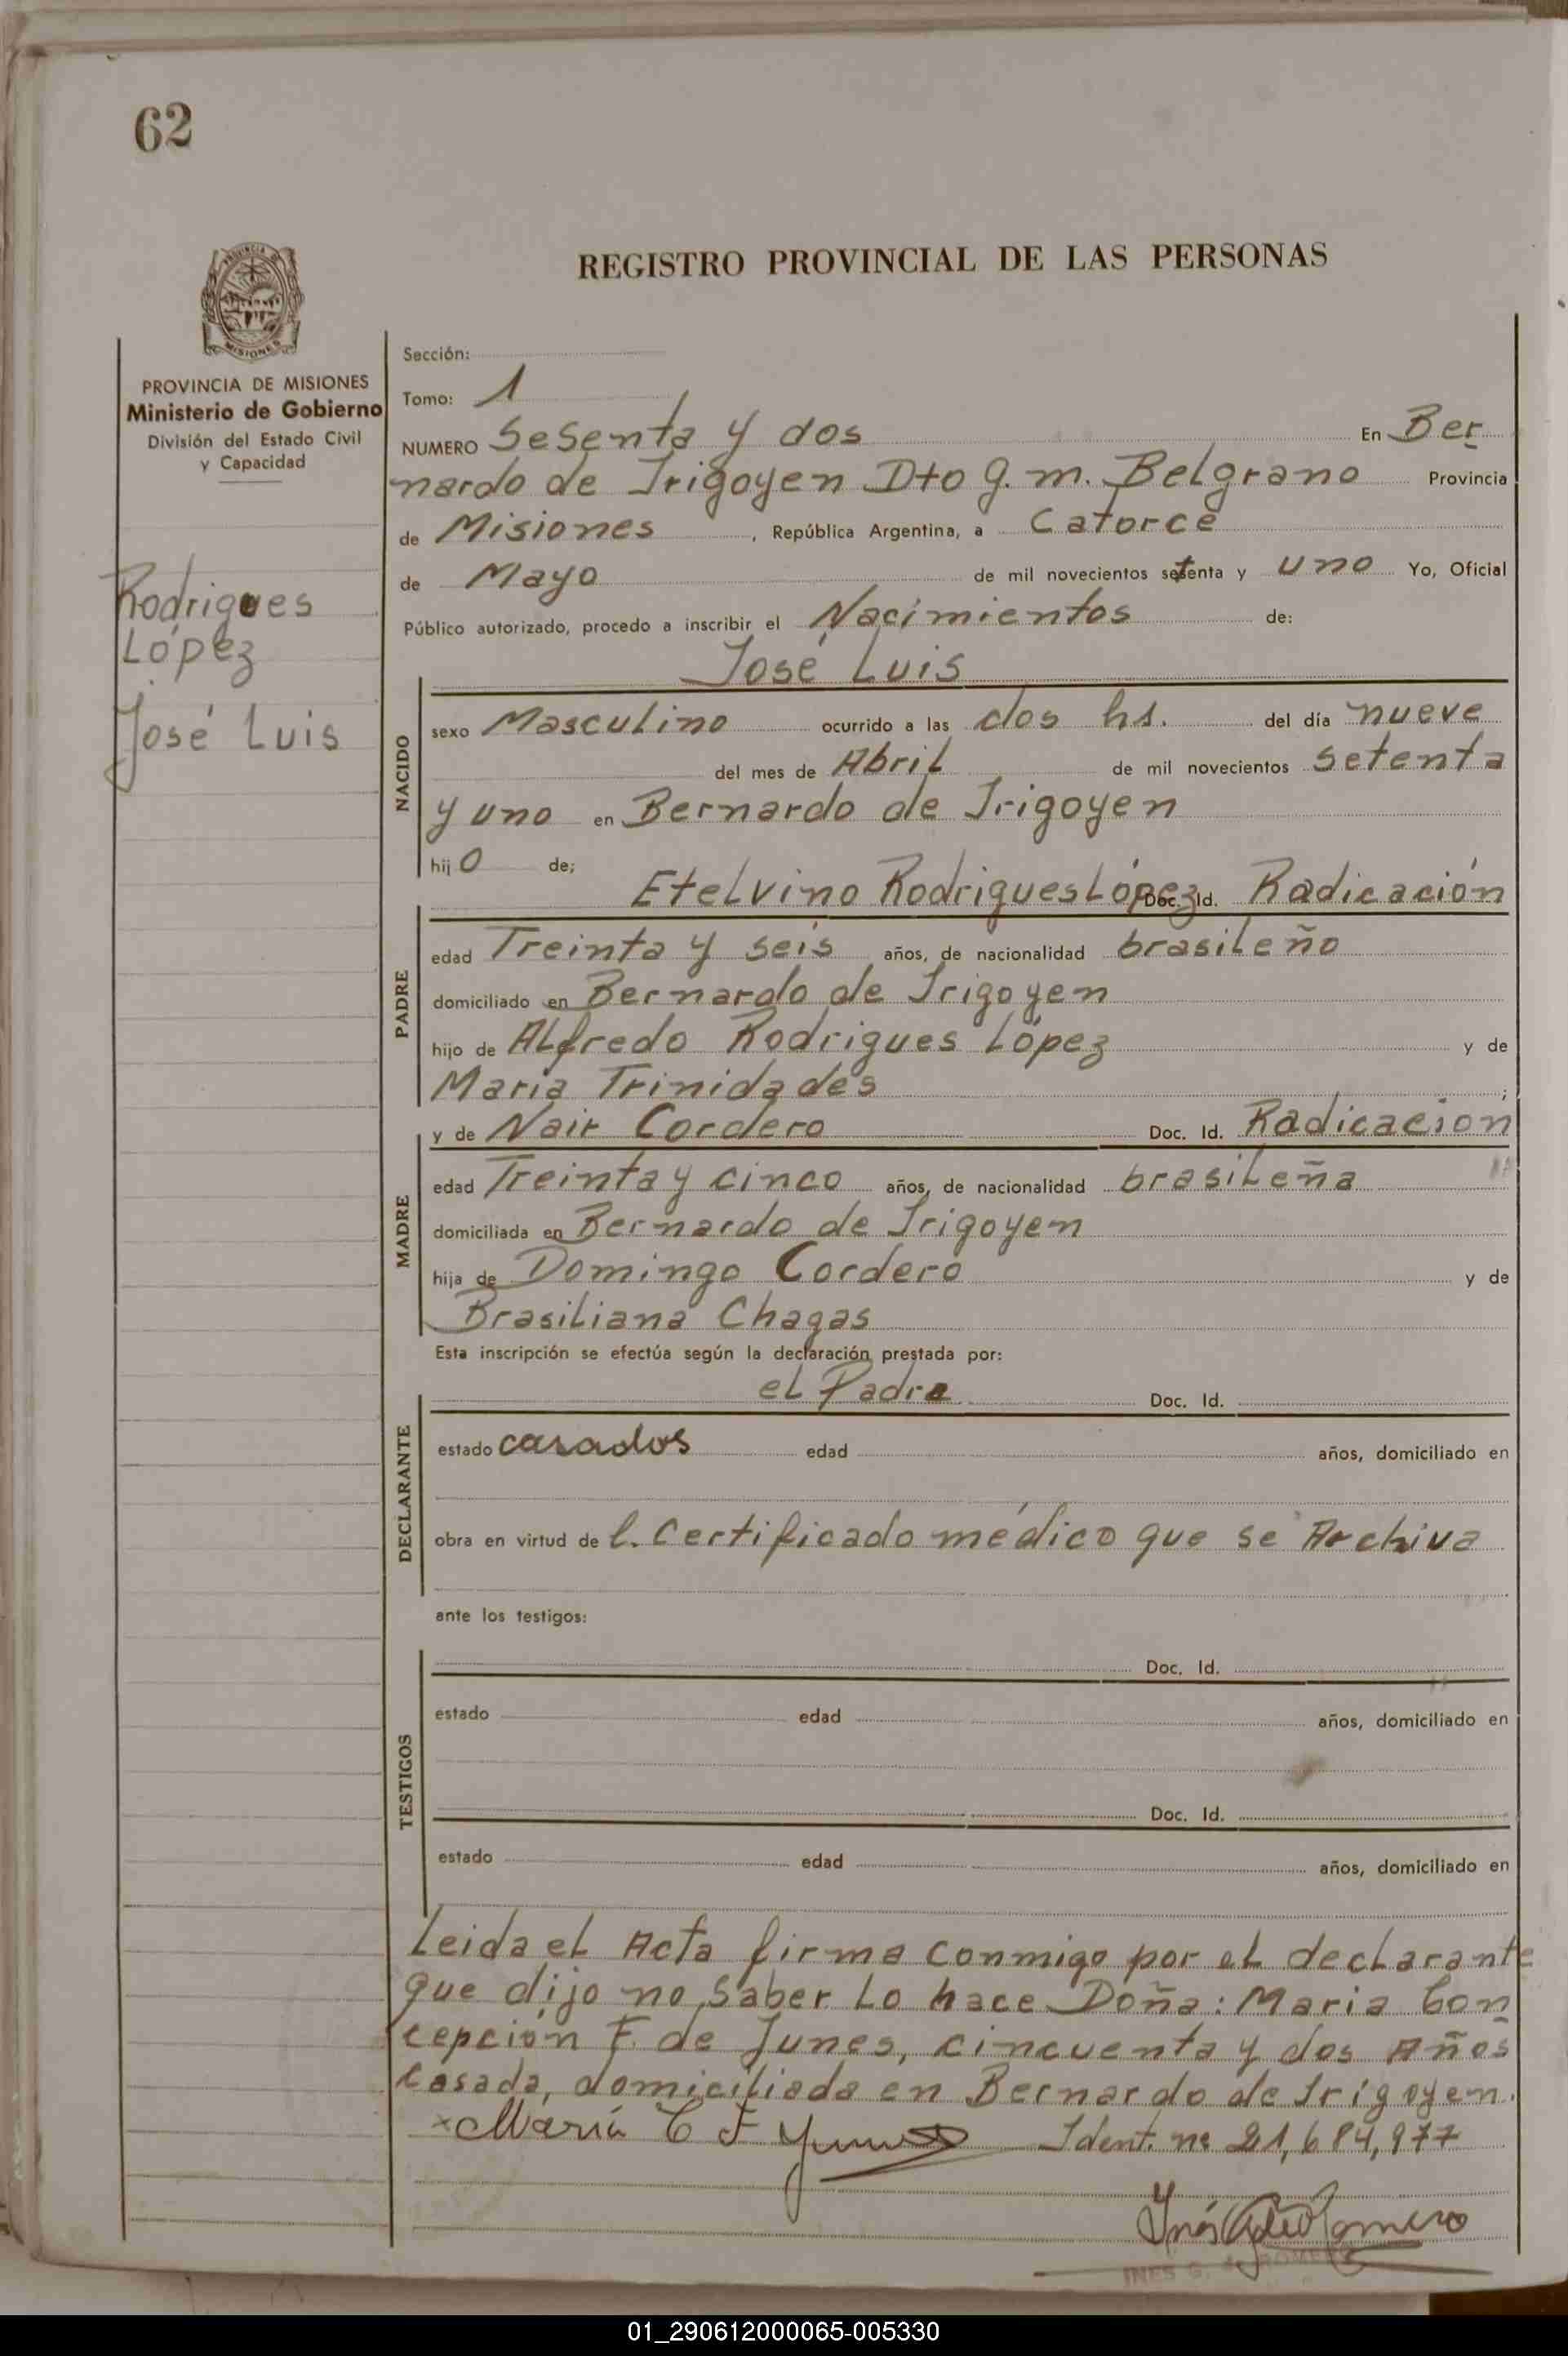 62
REGISTRO PROVINCIAL DE LAS PERSONAS
PROVINCIA
MISIONES
PROVINCIA DE MISIONES
Ministerio de Gobierno
División del Estado Civil
y Capacidad
Rodrigues
López
José Luis
Sección:
Tomo: 1
NUMERO Sesenta y dos En Ber
nardo de Irigoyen Dto g.m. Belgrano Provincia
de Misiones , República Argentina, a Catorce
de Mayo de mil novecientos setenta y uno Yo, Oficial
Público autorizado, procedo a inscribir el Nacimientos de:
José Luis
NACIDO
sexo Masculino ocurrido a las dos hs. del día nueve
del mes de Abril de mil novecientos setenta
y uno en Bernardo de Irigoyen
hijo de;
Etelvino Rodrigues López Doc. Id. Radicación
PADRE
edad Treinta y seis años, de nacionalidad brasileño
domiciliado en Bernardo de Irigoyen
hijo de Alfredo Rodrigues López y de
Maria Trinidades ;
y de Nair Cordero Doc. Id. Radicacion
MADRE
edad Treinta y cinco años, de nacionalidad brasileña
domiciliada en Bernardo de Irigoyen
hija de Domingo Cordero y de
Brasiliana Chagas
Esta inscripción se efectúa según la declaración prestada por:
el Padre Doc. Id.
DECLARANTE
estado casados edad años, domiciliado en
obra en virtud de l. Certificado médico que se Archiva
ante los testigos:
TESTIGOS
Doc. Id.
estado edad años, domiciliado en
Doc. Id.
estado edad años, domiciliado en
Leida el Acta firma conmigo por el declarante
que dijo no saber Lo hace Doña: Maria Con
cepción F. de Junes, cincuenta y dos Años
Casada, domiciliada en Bernardo de Irigoyen.
x María C F Ident. nº 21,684,977
Inés Romero
INES G. de ROMERO
01_290612000065-005330